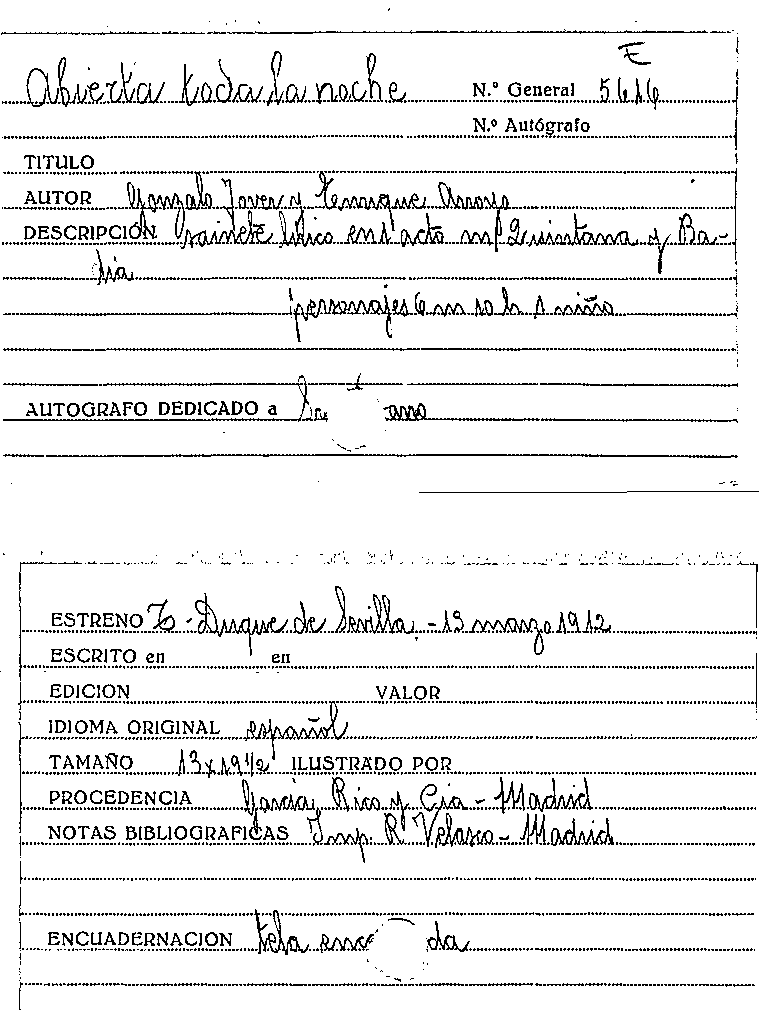 E
Abierta toda la noche N.º General 5616
N.º Autógrafo
TITULO
AUTOR Gonzalo Jover y Enrique Arroyo
DESCRIPCIÓN sainete lírico en 1 acto mº Quintana y Ba-
dia
personajes 6 m 10 h 1 niño
AUTOGRAFO DEDICADO a
ESTRENO T. Duque de Sevilla - 13 marzo 1912
ESCRITO en en
EDICION VALOR
IDIOMA ORIGINAL español
TAMAÑO 13 x 19 1/2 ILUSTRADO POR
PROCEDENCIA García, Rico y Cia - Madrid
NOTAS BIBLIOGRAFICAS Imp. R Velasco - Madrid
ENCUADERNACION tela